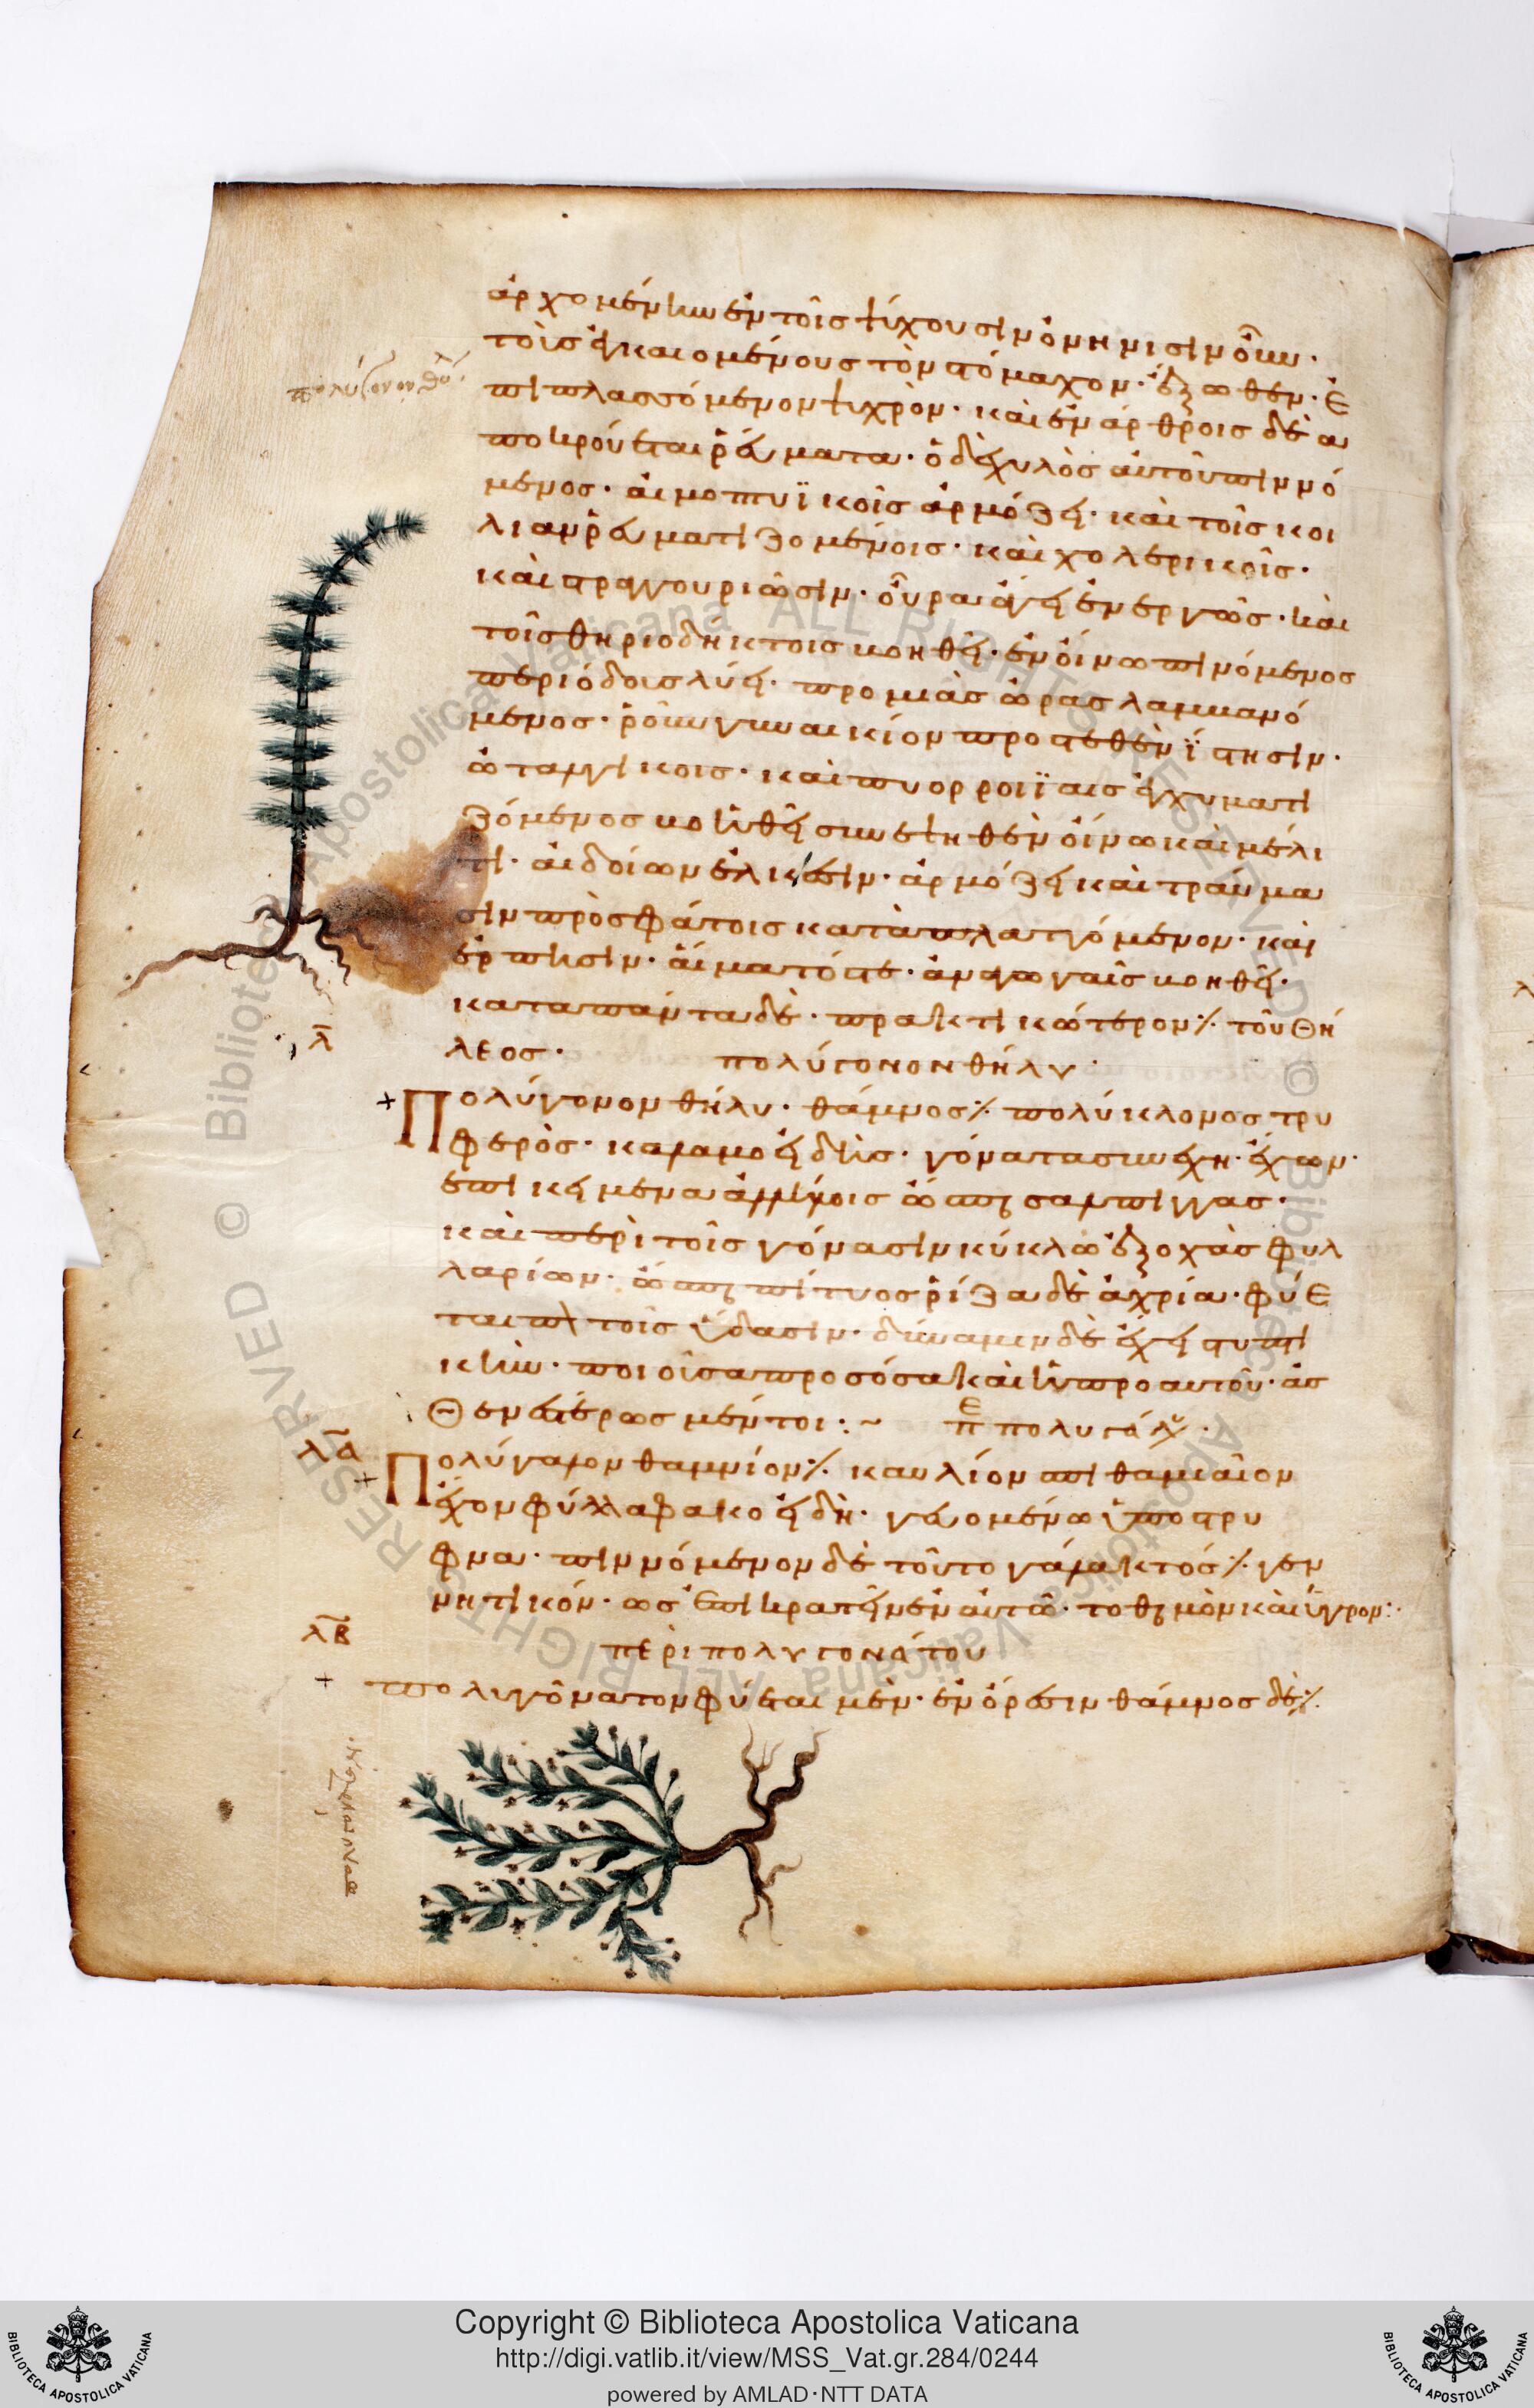 ἀρχομένην ἐν τοῖς ψύχουσιν ὀνήνισιν οὖν·
τοὺς ἐκκαιομένους τὸν στόμαχον· ἔξωθεν· ἐ
πιπλασσόμενον ψυχρὸν· καὶ ἐν ἄρθροις δὲ ἀ
ποκρούεται ῥεύματα· ὁ δὲ χυλὸς αὐτοῦ πιννό
μενος· αἱμοπτυϊκοῖς ἁρμόζει· καὶ τοῖς κοι
λίαν ῥευματιζομένοις· καὶ χολερικοῖς·
καὶ στραγουριῶσιν· οὖρα ἄγει ἐνεργῶς· καὶ
τοῖς θηριοδήκτοις βοηθεῖ· ἐν οἴνω πινόμενος
περιόδους λύει· προ μιᾶς ὥρας λαμβανό
μενος· ῥοῦν γυναικίον προστεθὲν ἵστησιν·
ὠταλγικοις· καὶ πυορροίϊαις ἐγχυματι
ζόμενος βοηθεῖ συνεψηθὲν οἴνω καὶ μέλι
τι· αἰδοίων ἑλικώσιν· ἁρμόζει καὶ τραύμα
σιν πρὸσφάτοις καταπλαττόμενον· καὶ
ἕρπησιν· αἵματός τε· ἀναγωγαῖς βοηθεῖ·
καταπάντα δὲ· πρακτικώτερον ⁒ τοῦ θή
λεος· πολύγονον θῆλυ·
λ̄
Πολύγονον θῆλυ· θάμνος ⁒ πολύκλονος τρυ
φερὸς· καλαμοειδὴς· γόνατα συνεχῆ· ἔχων·
ἐπικείμενα ἀλλήλοις ὥσπερ σαλπιγγας·
καὶ περὶ τοῖς γόνασιν κύκλω ἐξοχὰς φυλ
λαρίων· ὥσπερ πίτυος ῥίζα δὲ ἀχρία· φύε
ται πλ τοῖς ὕδασιν· δύναμιν δὲ ἔχει στυπτι
κὴν· ποιοῦσα προσόσα καὶ ἡ προ αυτοῦ· ἀσ
θενέστερως μέντοι :~ πε πολυγάλου·
λᾱ
Πολύγαλον θαμνίον ⁒ καυλίον σπιθαμιαῖον
ἔχον φύλλα φακοειδῆ· γευομένω ὑποστρυ
φνα· πιννόμενον δὲ τοῦτο γάλακτός ⁒ γεν
νητικόν· ως ἐπικρατεῖν ἐν αυτῶ· το θερμὸν καὶ ὑγρον :·
λ̄β
περὶ πολυγονάτου
πολυγόνατον φύεται μὲν· ἐν όρεσιν θάμνος δὲ ⁒
Copyright © Biblioteca Apostolica Vaticana
http://digi.vatlib.it/view/MSS_Vat.gr.284/0244
powered by AMLAD·NTT DATA
BIBLIOTECA APOSTOLICA VATICANA
BIBLIOTECA APOSTOLICA VATICANA